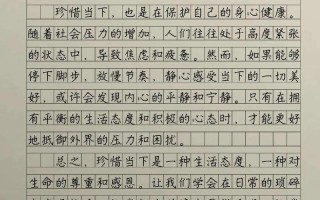 珍惜当下，也是在保护自己的身心健康。
随着社会压力的增加，人们往往处于高度紧张
的状态中，导致焦虑和疲惫。然而，如果能够
停下脚步，放慢节奏，静心感受当下的一切美
好，或许会发现内心的平静和宁静。只有在拥
有平衡的生活态度和积极的心态时，才能更好
地抵御外界的压力和困扰。
总之，珍惜当下是一种生活态度，一种对
生命的尊重和感恩。让我们学会在日常的琐碎